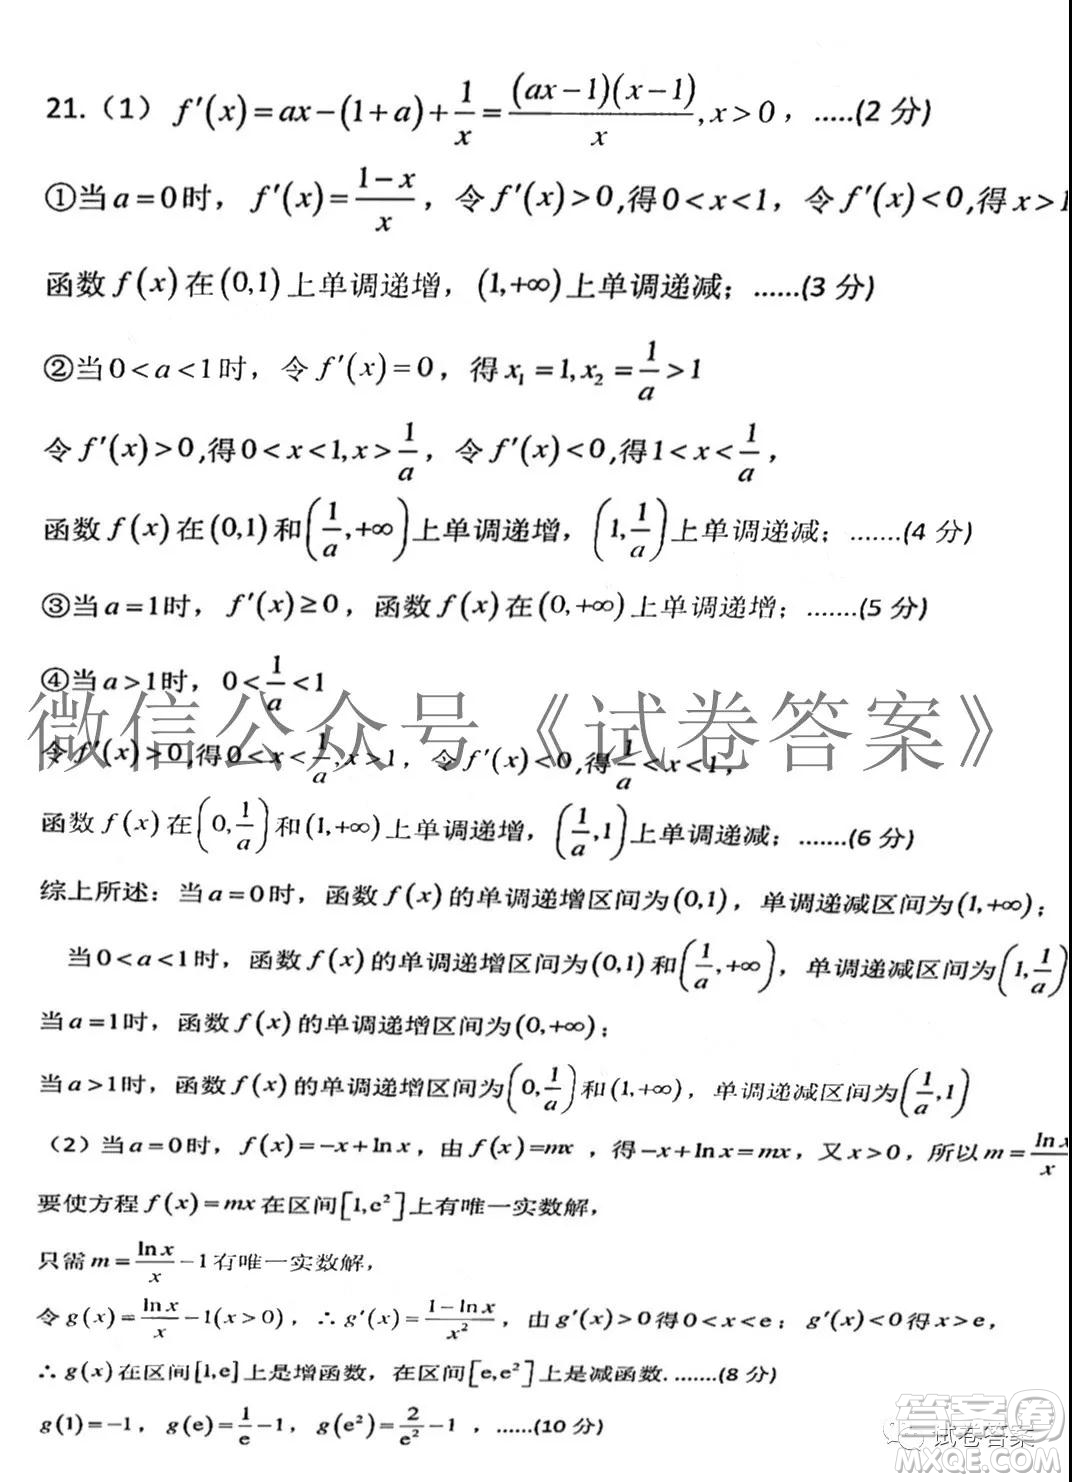 21.（1）f′(x)=ax−(1+a)+1/x=(ax−1)(x−1)/x,x>0，.....(2 分)
①当a=0时，f′(x)=(1−x)/x，令f′(x)>0,得0<x<1，令f′(x)<0,得x>1
函数f(x)在(0,1)上单调递增，(1,+∞)上单调递减；......(3 分)
②当0<a<1时，令f′(x)=0，得x₁=1,x₂=1/a>1
令f′(x)>0,得0<x<1,x>1/a，令f′(x)<0,得1<x<1/a，
函数f(x)在(0,1)和(1/a,+∞)上单调递增，(1,1/a)上单调递减；.......(4 分)
③当a=1时，f′(x)≥0，函数f(x)在(0,+∞)上单调递增；.......(5 分)
④当a>1时，0<1/a<1
微信公众号《试卷答案》
令f′(x)>0,得0<x<1/a,x>1，令f′(x)<0,得1/a<x<1，
函数f(x)在(0,1/a)和(1,+∞)上单调递增，(1/a,1)上单调递减；.......(6 分)
综上所述：当a=0时，函数f(x)的单调递增区间为(0,1)，单调递减区间为(1,+∞)；
当0<a<1时，函数f(x)的单调递增区间为(0,1)和(1/a,+∞)，单调递减区间为(1,1/a)
当a=1时，函数f(x)的单调递增区间为(0,+∞)；
当a>1时，函数f(x)的单调递增区间为(0,1/a)和(1,+∞)，单调递减区间为(1/a,1)
（2）当a=0时，f(x)=−x+lnx，由f(x)=mx，得−x+lnx=mx，又x>0，所以m=lnx/x
要使方程f(x)=mx在区间[1,e²]上有唯一实数解，
只需m=lnx/x−1有唯一实数解，
令g(x)=lnx/x−1(x>0)，∴g′(x)=(1−lnx)/x²，由g′(x)>0得0<x<e；g′(x)<0得x>e，
∴g(x)在区间[1,e]上是增函数，在区间[e,e²]上是减函数.......(8 分)
g(1)=−1，g(e)=1/e−1，g(e²)=2/e²−1，......(10 分)
答案卷
试卷答案
MXQE.COM